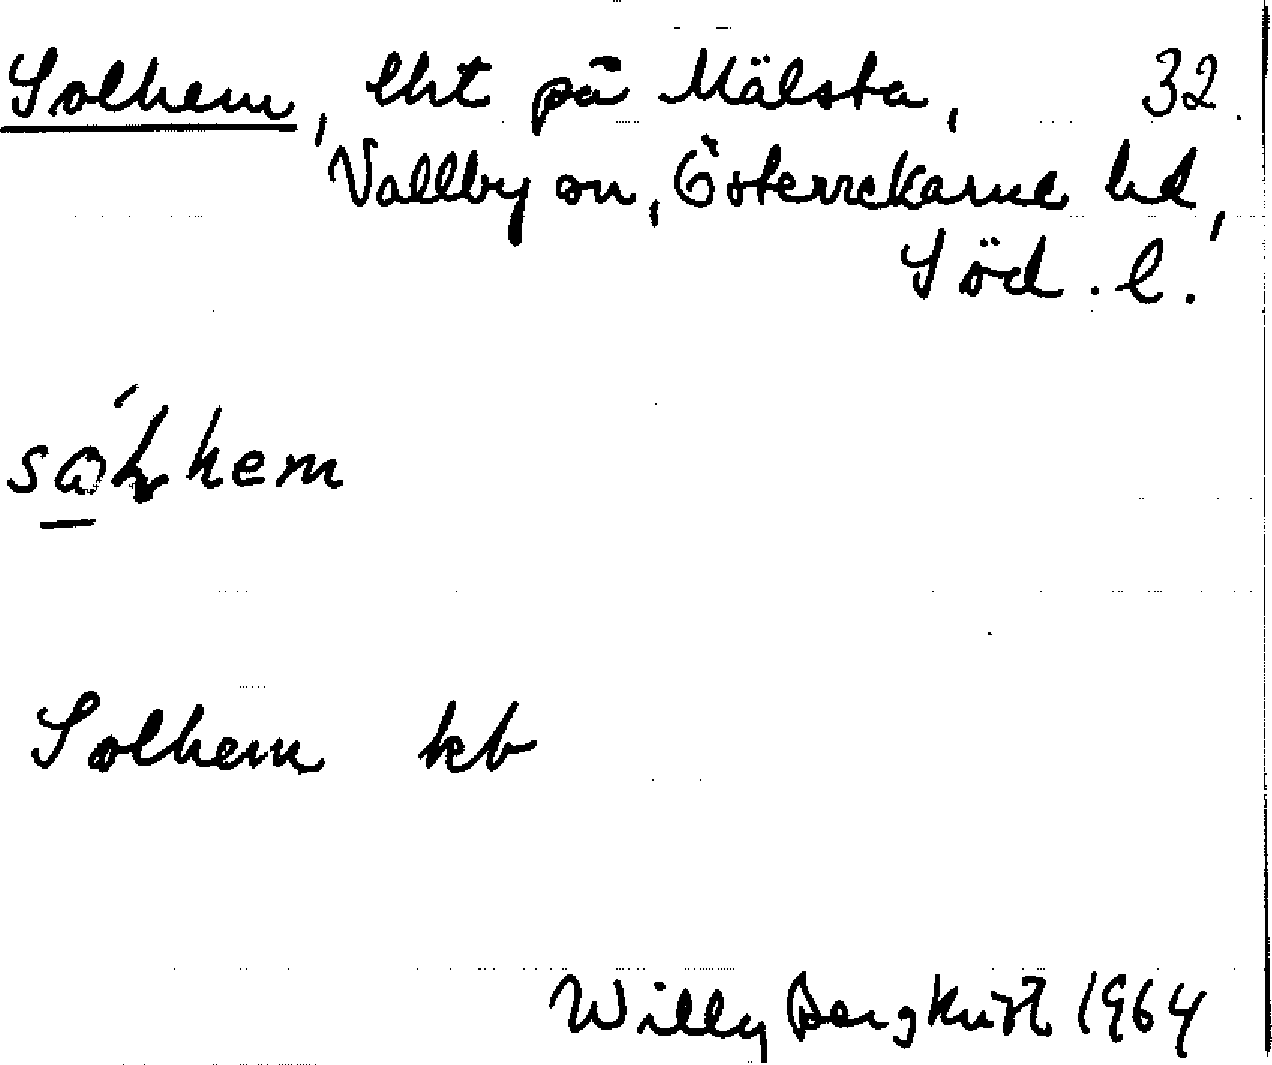 Solhem, lht på Mälsta, 32.
Vallby sn, Österrekarne hd,
Söd. l.
Solhem kb
Willy Bergkvist 1964